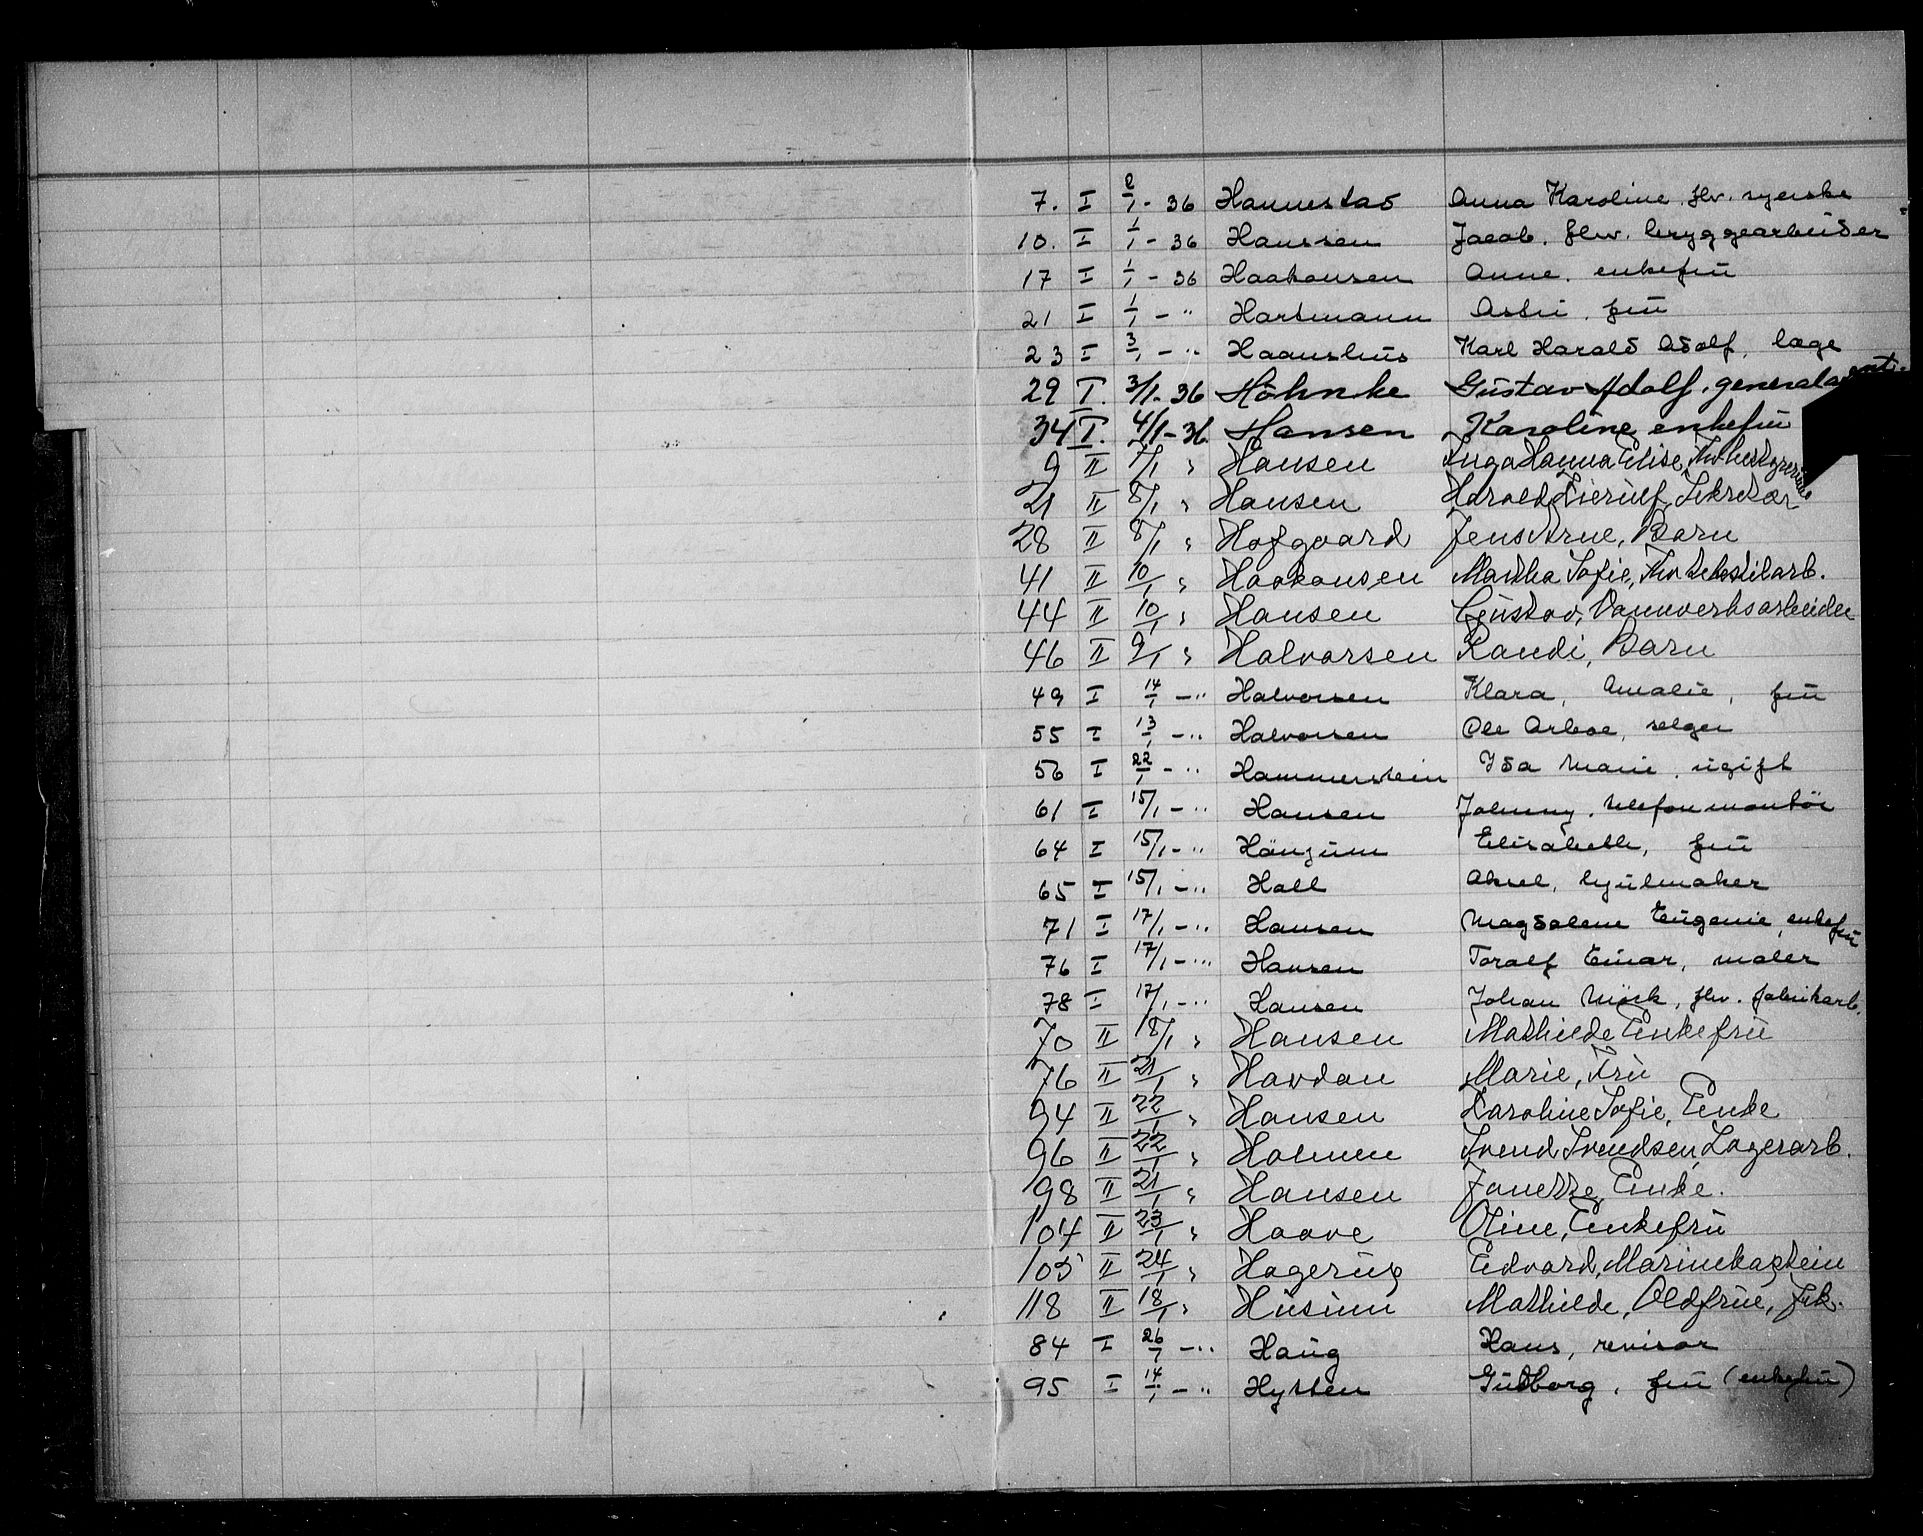 7. I 2/1 - 36 Hannestad Anna Karoline, fhv. syerske
10. I 1/1 - 36 Hanssen Jacob, fhv. bryggearbeider
17 I 1/1 - 36 Haakonsen Anne, enkefrü
21 I 1/1 - " Hartmann Astri, frü
23 I 3/1 - " Haanshus Karl Harald Adolf, læge
29 I. 3/1 - 36 Höhnke Gustav Adolf, generalagent.
34 I. 4/1 - 36 Hansen Karoline enkefrü
9 II 7/1 " Hansen Inga Hanna Elise, Fhv.
21 II 8/1 " Hansen Harald Lierulf, Sekretær
28 II 8/1 " Hofgaard Jens Arne, Barn
41 II 10/1 " Haakonsen Martha Sofie, Fhv tekstilarb.
44 II 10/1 " Hansen Gustav, Vannverksarbeider
46 II 9/1 " Halvorsen Randi, Barn
49 I 14/1 - " Halvorsen Klara, Amalie, frü
55 I 13/1 - " Halvorsen Ole Arboe, selger
56 I 22/1 - " Hammerstein Ida Marie, ugift
61 I 15/1 - " Hansen Johnny, telefonmontör
64 I 15/1 - " Elisabeth, frü
65 I 15/1 - " Hall Aksel, hjulmaker
71 I 17/1 - " Hansen Magdalene Eugenie, enkefrü
76 I 17/1 - " Hansen Toralf Einar, maler
78 I 17/1 - " Hansen Johan Mörk, fhv. fabrikarb.
70 II 18/1 " Hansen Mathilde Enkefrü
76 II 21/1 " Havdan Marie, Frü
94 II 22/1 " Hansen Karoline Sofie, Enke
96 II 22/1 " Holmen Svend Svendsen, Lagerarb.
98 II 21/1 " Hansen Janette, Enke.
104 II 23/1 " Haave Oline, Enkefrü
105 II 24/1 " Hagerup Edvard, Marinekaptein
118 II 18/1 " Husum Mathilde, Oldfrue, Frk.
84 I 26/1 - " Haug Hans, revisor
95 I 14/1 - " Hytten Gudborg, frü (enkefrü)